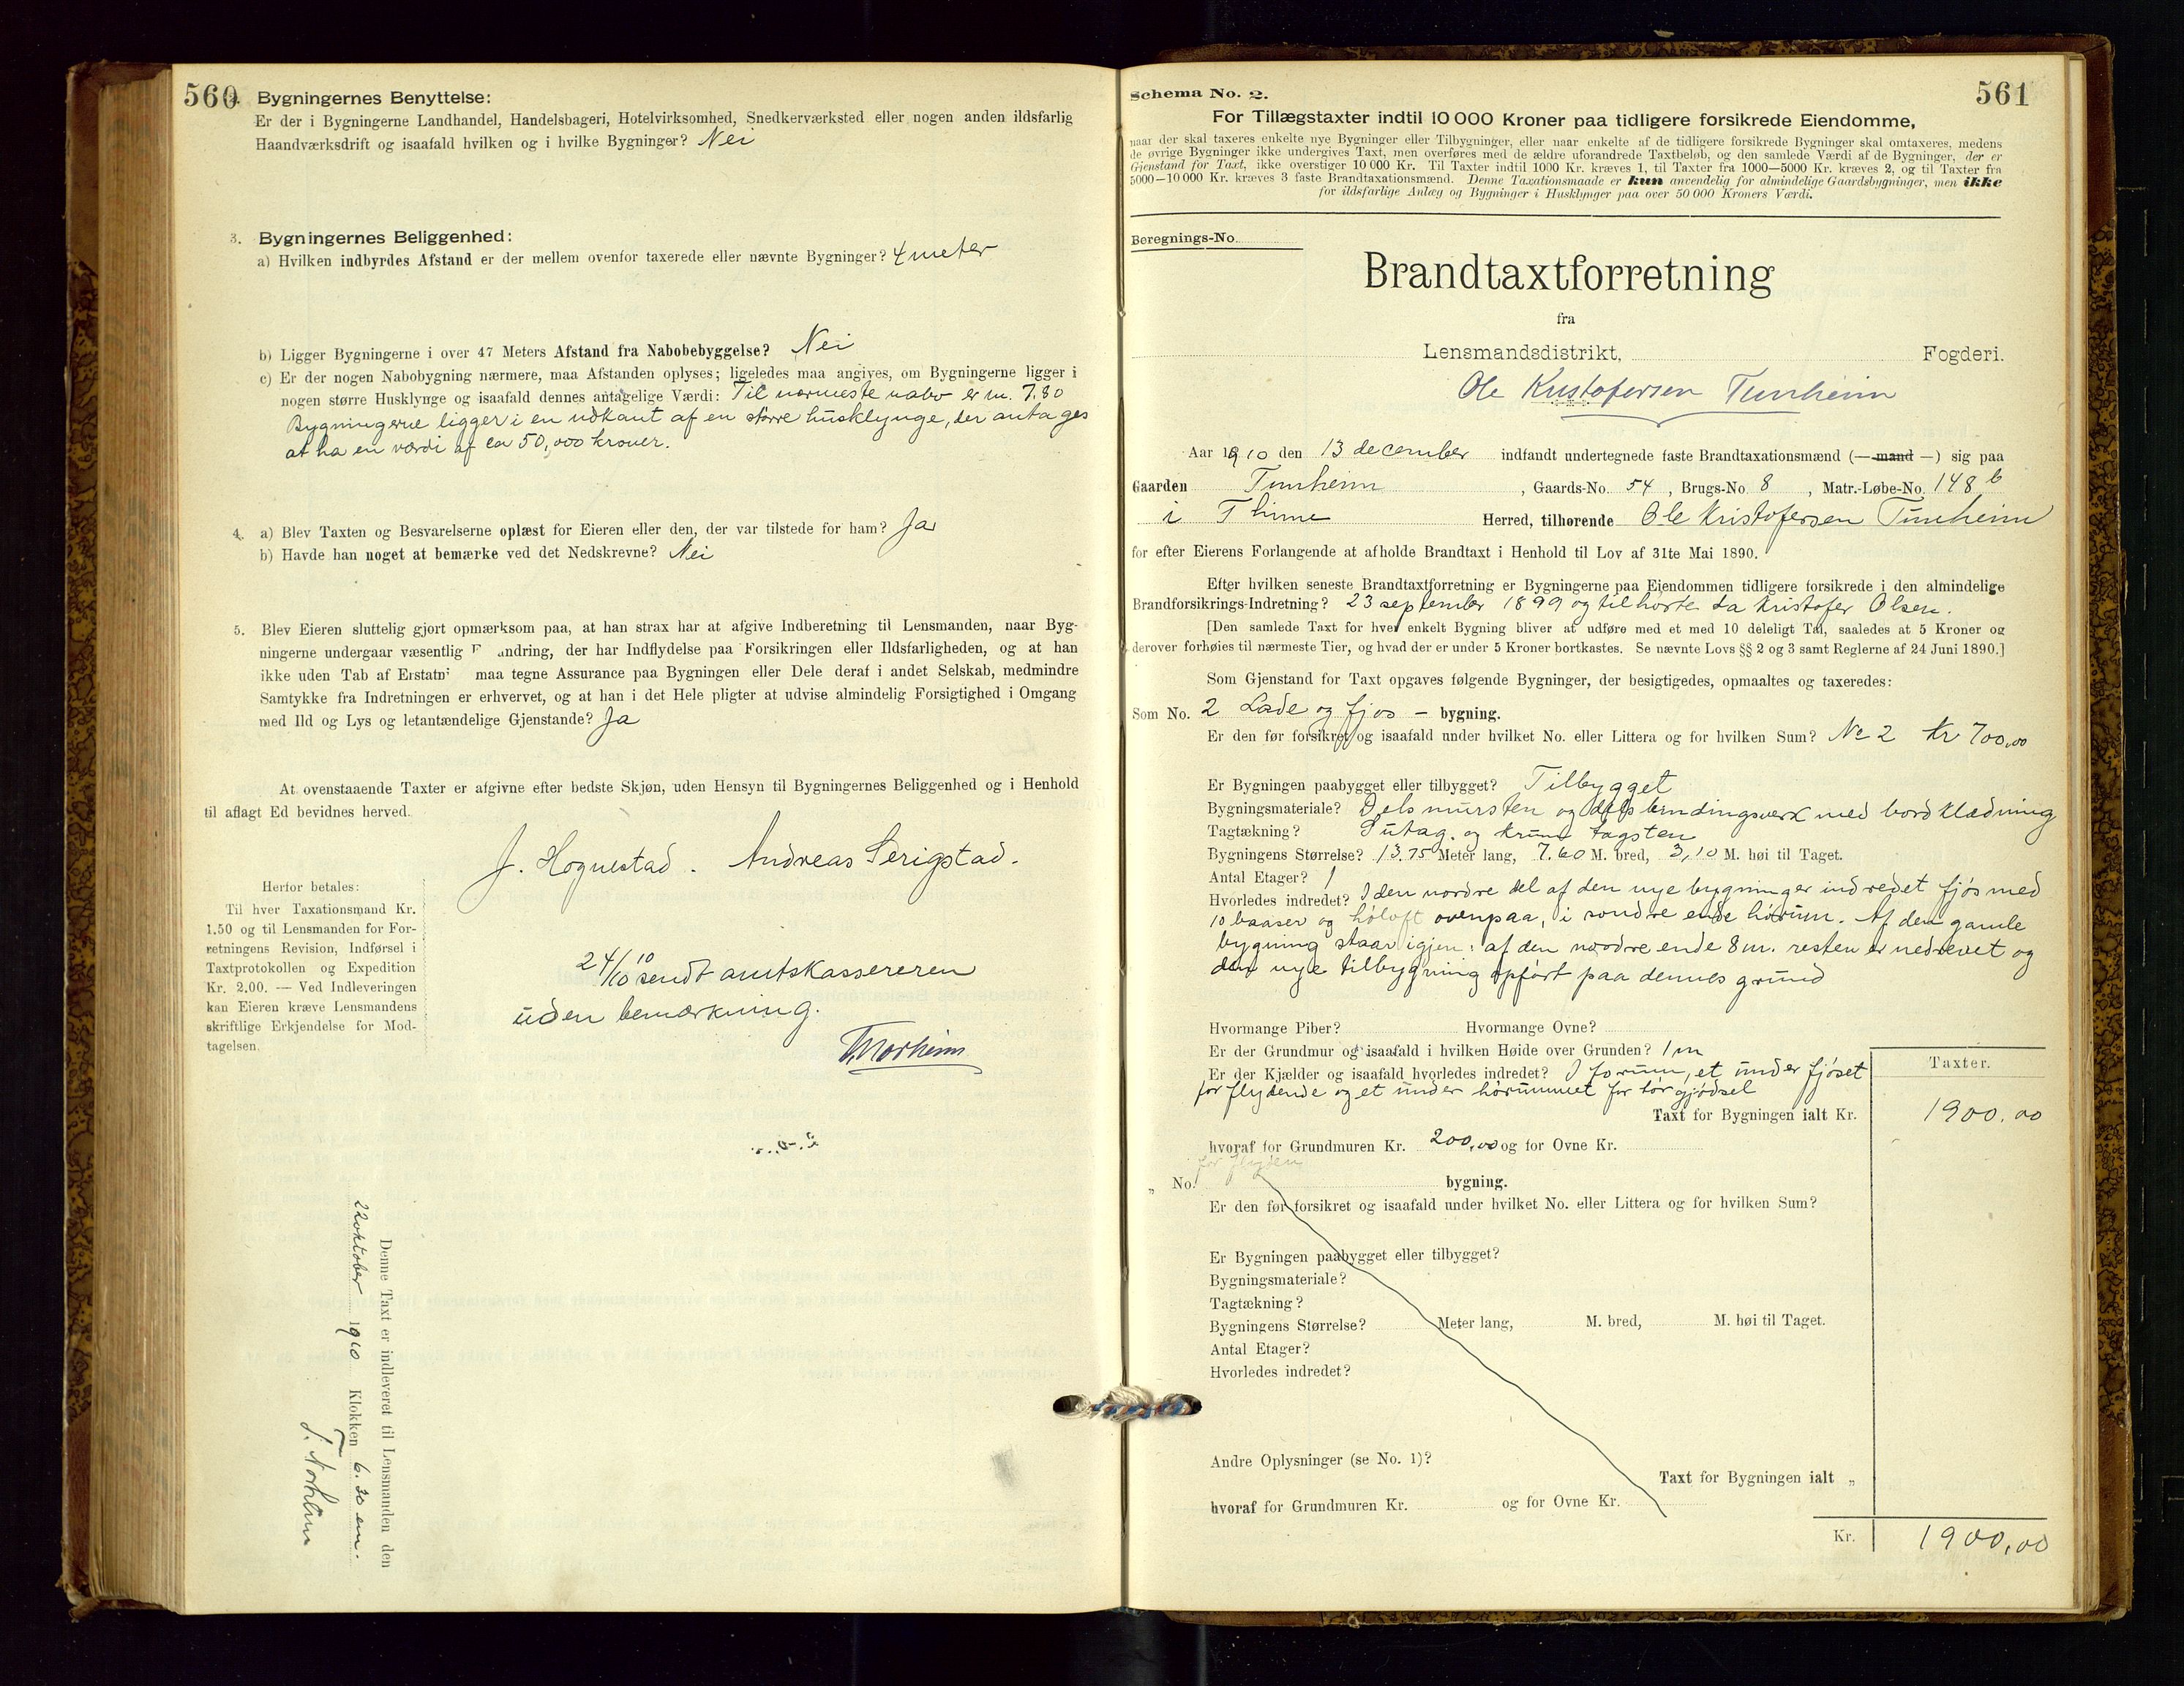 560
2. Bygningernes Benyttelse:
Er der i Bygningerne Landhandel, Handelsbageri, Hotelvirksomhed, Snedkerværksted eller nogen anden ildsfarlig
Haandværksdrift og isaafald hvilken og i hvilke Bygninger? Nei
3. Bygningernes Beliggenhed:
a) Hvilken indbyrdes Afstand er der mellem ovenfor taxerede eller nævnte Bygninger? 4 meter
b) Ligger Bygningerne i over 47 Meters Afstand fra Nabobebyggelse? Nei
c) Er der nogen Nabobygning nærmere, maa Afstanden oplyses; ligeledes maa angives, om Bygningerne ligger i
nogen større Husklynge og isaafald dennes antagelige Værdi: Til nærmeste nabo er m. 7,80
Bygningerne ligger i en udkant af en større husklynge, der antages
at ha en værdi af ca 50,000 kroner.
4. a) Blev Taxten og Besvarelserne oplæst for Eieren eller den, der var tilstede for ham? Ja
b) Havde han noget at bemærke ved det Nedskrevne? Nei
5. Blev Eieren sluttelig gjort opmærksom paa, at han strax har at afgive Indberetning til Lensmanden, naar Byg-
ningerne undergaar væsentlig F andring, der har Indflydelse paa Forsikringen eller Ildsfarligheden, og at han
ikke uden Tab af Erstatn maa tegne Assurance paa Bygningen eller Dele deraf i andet Selskab, medmindre
Samtykke fra Indretningen er erhvervet, og at han i det Hele pligter at udvise almindelig Forsigtighed i Omgang
med Ild og Lys og letantændelige Gjenstande? Ja
At ovenstaaende Taxter er afgivne efter bedste Skjøn, uden Hensyn til Bygningernes Beliggenhed og i Henhold
til aflagt Ed bevidnes herved.
J. Hognestad. Andreas Serigstad.
Herfor betales:
Til hver Taxationsmand Kr.
1.50 og til Lensmanden for For-
retningens Revision, Indførsel i
Taxtprotokollen og Expedition
Kr. 2.00. — Ved Indleveringen
kan Eieren kræve Lensmandens
skriftlige Erkjendelse for Mod-
tagelsen.
24/10 10 sendt amtskassereren
uden bemærkning.
Denne Taxt er indleveret til Lensmanden den
22 oktober 1910 Klokken 6.30 em.
561
Schema No. 2.
For Tillægstaxter indtil 10 000 Kroner paa tidligere forsikrede Eiendomme,
naar der skal taxeres enkelte nye Bygninger eller Tilbygninger, eller naar enkelte af de tidligere forsikrede Bygninger skal omtaxeres, medens
de øvrige Bygninger ikke undergives Taxt, men overføres med de ældre uforandrede Taxtbeløb, og den samlede Værdi af de Bygninger, der er
Gjenstand for Taxt, ikke overstiger 10 000 Kr. Til Taxter indtil 1000 Kr. kræves 1, til Taxter fra 1000—5000 Kr. kræves 2, og til Taxter fra
5000—10 000 Kr. kræves 3 faste Brandtaxationsmænd. Denne Taxationsmaade er kun anvendelig for almindelige Gaardsbygninger, men ikke
for ildsfarlige Anlæg og Bygninger i Husklynger paa over 50 000 Kroners Værdi.
Beregnings-No.
Brandtaxtforretning
fra
Lensmandsdistrikt, Fogderi.
Ole Kristofersen Tunheim
Aar 1910 den 13 december indfandt undertegnede faste Brandtaxationsmænd (— mand —) sig paa
Gaarden Tunheim, Gaards-No. 54, Brugs-No 8, Matr.-Løbe-No. 148 b
i Thime Herred, tilhørende Ole Kristofersen Tunheim
for efter Eierens Forlangende at afholde Brandtaxt i Henhold til Lov af 31te Mai 1890.
Efter hvilken seneste Brandtaxtforretning er Bygningerne paa Eiendommen tidligere forsikrede i den almindelige
Brandforsikrings-Indretning? 23 september 1899 og tilhørte da Kristofer Olsen.
[Den samlede Taxt for hver enkelt Bygning bliver at udføre med et med 10 deleligt Tal, saaledes at 5 Kroner og
derover forhøies til nærmeste Tier, og hvad der er under 5 Kroner bortkastes. Se nævnte Lovs §§ 2 og 3 samt Reglerne af 24 Juni 1890.]
Som Gjenstand for Taxt opgaves følgende Bygninger, der besigtigedes, opmaaltes og taxeredes:
Som No. 2 Lade og fjos - bygning.
Er den før forsikret og isaafald under hvilket No. eller Littera og for hvilken Sum? No 2 Kr 700,00
Er Bygningen paabygget eller tilbygget? Tilbygget
Bygningsmateriale? Dels mursten og dels bindingsverk med bordklædning
Tagtækning? Sutag. og krum tagsten
Bygningens Størrelse? 13.75 Meter lang, 7.60 M. bred, 3,10 M. høi til Taget.
Antal Etager? 1
Hvorledes indredet? I den nordre del af den nye bygning er indredet fjøs med
10 baaser og høloft ovenpaa, i søndre ende hørum. Af den gamle
bygning staar igjen af den nordre ende 8 m. resten er nedrevet og
den nye tilbygning opført paa dennes grund
Hvormange Piber? Hvormange Ovne?
Er der Grundmur og isaafald i hvilken Høide over Grunden? 1 m
Er der Kjælder og isaafald hvorledes indredet? I forum, et under fjøset
for flydende og et under hørummet for tør gjødsel
Taxter.
Taxt for Bygningen ialt Kr. 1900,00
hvoraf for Grundmuren Kr. 200,00 og for Ovne Kr.
for flyden
„ No. bygning.
Er den før forsikret og isaafald under hvilket No. eller Littera og for hvilken Sum?
Er Bygningen paabygget eller tilbygget?
Bygningsmateriale?
Tagtækning?
Bygningens Størrelse? Meter lang, M. bred, M. høi til Taget.
Antal Etager?
Hvorledes indredet?
Andre Oplysninger (se No. 1)?
Taxt for Bygningen ialt „
hvoraf for Grundmuren Kr. og for Ovne Kr.
Kr. 1900,00